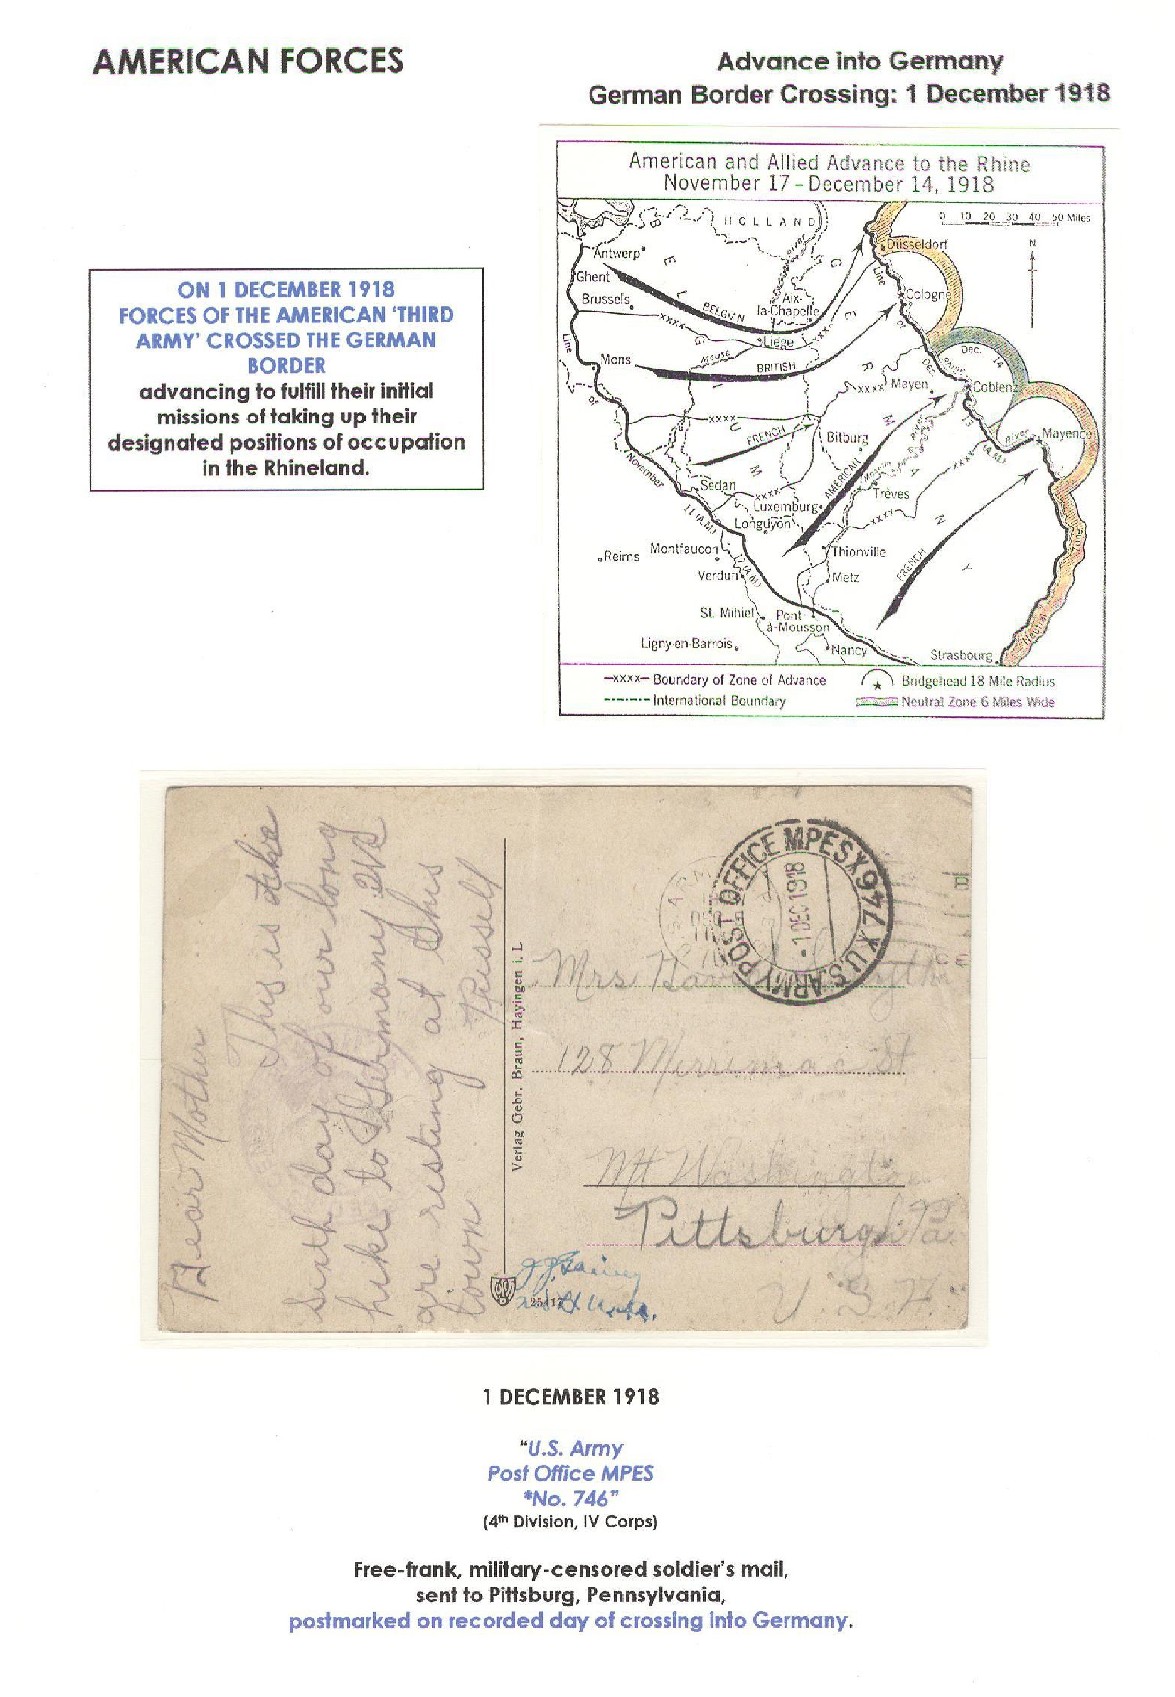 AMERICAN FORCES
Advance into Germany
German Border Crossing: 1 December 1918
ON 1 DECEMBER 1918
FORCES OF THE AMERICAN 'THIRD
ARMY' CROSSED THE GERMAN
BORDER
advancing to fulfill their initial
missions of taking up their
designated positions of occupation
in the Rhineland.
American and Allied Advance to the Rhine
November 17 – December 14, 1918
HOLLAND
0 10 20 30 40 50 Miles
N
Antwerp
Düsseldorf
Ghent
Brussels
BELGIAN
Aix-
la-Chapelle
Cologne
Line
Liège
Mons
Meuse
BRITISH
DEC. 14
Mayen
Coblenz
FRENCH
Bitburg
River
Mayence
November
Sedan
AMERICAN
Trèves
Luxemburg
Longuyon
Reims
Montfaucon
Thionville
Verdun
Metz
FRENCH
St. Mihiel
Pont-
à-Mousson
Ligny-en-Barrois
Nancy
Strasbourg
Neutral
–xxxx– Boundary of Zone of Advance
Bridgehead 18 Mile Radius
International Boundary
Neutral Zone 6 Miles Wide
Dear Mother
This is the
sixth day of our long
hike to Germany we
are resting at this
town
Russell
Verlag Gebr. Braun, Hayingen i. L
U.S. ARMY POST OFFICE MPES X 746 X
-1 DEC 1918
Mrs
128 Merrimac St
Mt Washington
Pittsburgh Pa.
U.S.A.
1 DECEMBER 1918
"U.S. Army
Post Office MPES
*No. 746"
(4th Division, IV Corps)
Free-frank, military-censored soldier's mail,
sent to Pittsburg, Pennsylvania,
postmarked on recorded day of crossing into Germany.